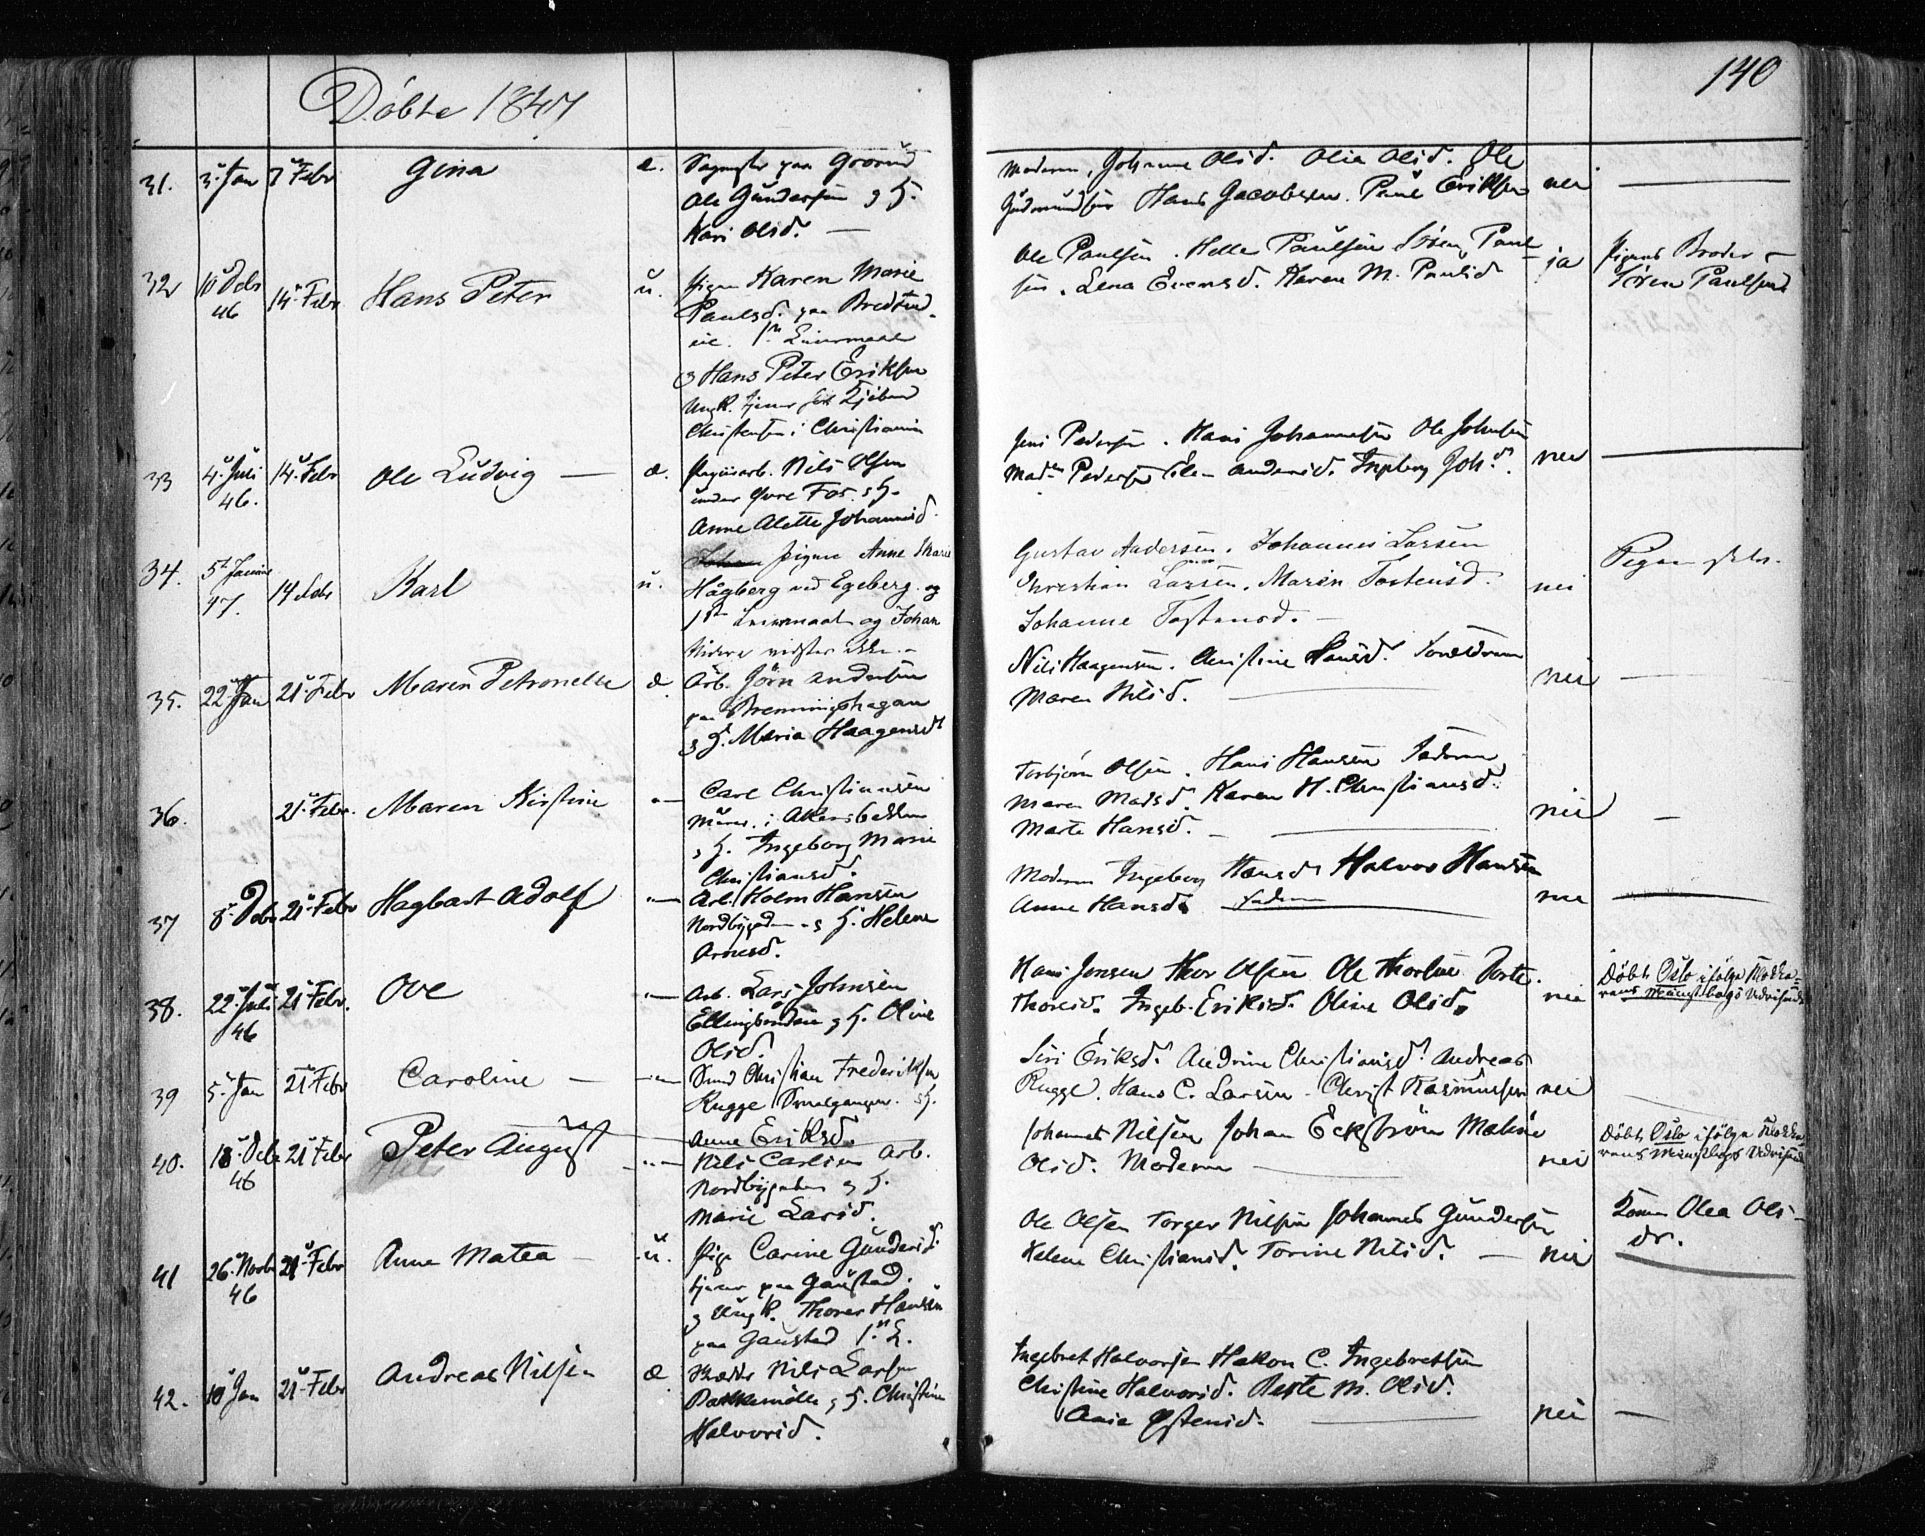 Döbte 1847
140
31. 3. Jan 7 Febr Gina e. paa Grorud
Ole Gundersen og H.
Kari Olsd. —
Moderen, Johanne Olsd. Olia Olsd. Ole
Gudmundsen Hans Jacobsen. Paul Eriksen nei —
32 10 Debr 46 14 Febr Hans Peter u. Pigen Karen Marie
Paulsd. paa
1ste Leiermaal
og Hans Peter Eriksen
Ungk. tjener hos
Christensen i Christiania
Ole Paulsen. Helle Paulsen Sören Paul-
sen. Lena Evensd. Karen M. Paulsd ja
Pigens Broder
Sören Paulsen
33 4. Juli 46. 14. Febr Ole Ludvig — æ. Nils Olsen
under Øvre Fos. og H.
Anne Alette Johannesd.
Jens Pedersen. Hans Johannesen Ole Johnsen
Mad. Pedersen Andersd. Ingeborg Joh.d. nei —
34. 5te Januar 47. 14 Febr Karl u. Johan pigen Anne Marie
Hågberg ved Egeberg og
1ste Leiermaal og Johan
videre vidstes ikke. —
Gustav Andersen. Johannes Larsen
Christian Larsen. Maren Tostensd.
Johanne Tostensd. — nei
Pigen selv.
35. 22 Jan 21 Febr Maren Petronelle æ. Arb. Jörn Andersen
paa Brenningshagan
og H. Maria Haagensd
Nils Haagensen. Christine Hansd.
Maren Nilsd. — nei —
36. 21. Febr. Maren Kirstine "— Carl Christiansen
Murer. i Akersbakken
og H. Ingeborg Marie
Christiansd.
Torbjörn Olsen. Hans Hansen Faderen
Maren Madsd. Karen H. Christiansd.
Marte Hansd. — nei —
37 8. Debr 21. Febr Hagbart Adolf "— Arb. Holm Hansen
Nordbygaden og H. Helene
Arnesd.
Moderen Ingeborg Hansd Halvor Hansen
Anne Hansd. Faderen nei —
38. 22. Juli 46 21 Febr. Ove "— Arb. Lars Johnsen
og H. Oline
Olsd.
Hans Jensen Thor Olsen Ole Thorsen Dorte
Thorsd. Ingeb. Eriksd. Oline Olsd. nei
Döbt i Oslo ifölge Klokke-
rens Attest
39 5. Jan 21 Febr Caroline — "— Smed Christian Frederiksen
Rugge Smalgangen. og H.
Anne Eriksd.
Siri Eriksd. Andrine Christiansd. Andreas
Rugge. Hans C. Larsen. Christ Rasmussen nei
40. 18. Debr 46 21 Febr Peter August "— Nils Carlsen Arb.
Nordbygaden og H.
Marie Larsd.
Johannes Nilsen Johan Eckström Maline
Olsd. Moderen — nei
Döbt i Oslo ifölge Klokke-
rens
41 26. Novbr 46 21 Febr Anne Matea — u. Pige Carine Gundersd.
tjener paa Gaustad.
og Ungk. Thorer Hansen
paa Gaustad 1ste L.
Ole Olsen Torger Nilsen Johannes Gundersen
Helene Christiansd. Torine Nilsd. — nei
Konen Olea Ols-
dr.
42. 10 Jan 21 Febr Andreas Nilsen æ Skredder Nils Larsen
Bakkemölle og H. Christine
Halvorsd.
Ingebret Halvorsen Hakon C. Ingebretsen
Christine Halvorsd. Berte M. Olsd.
Ania Østensd. — nei —